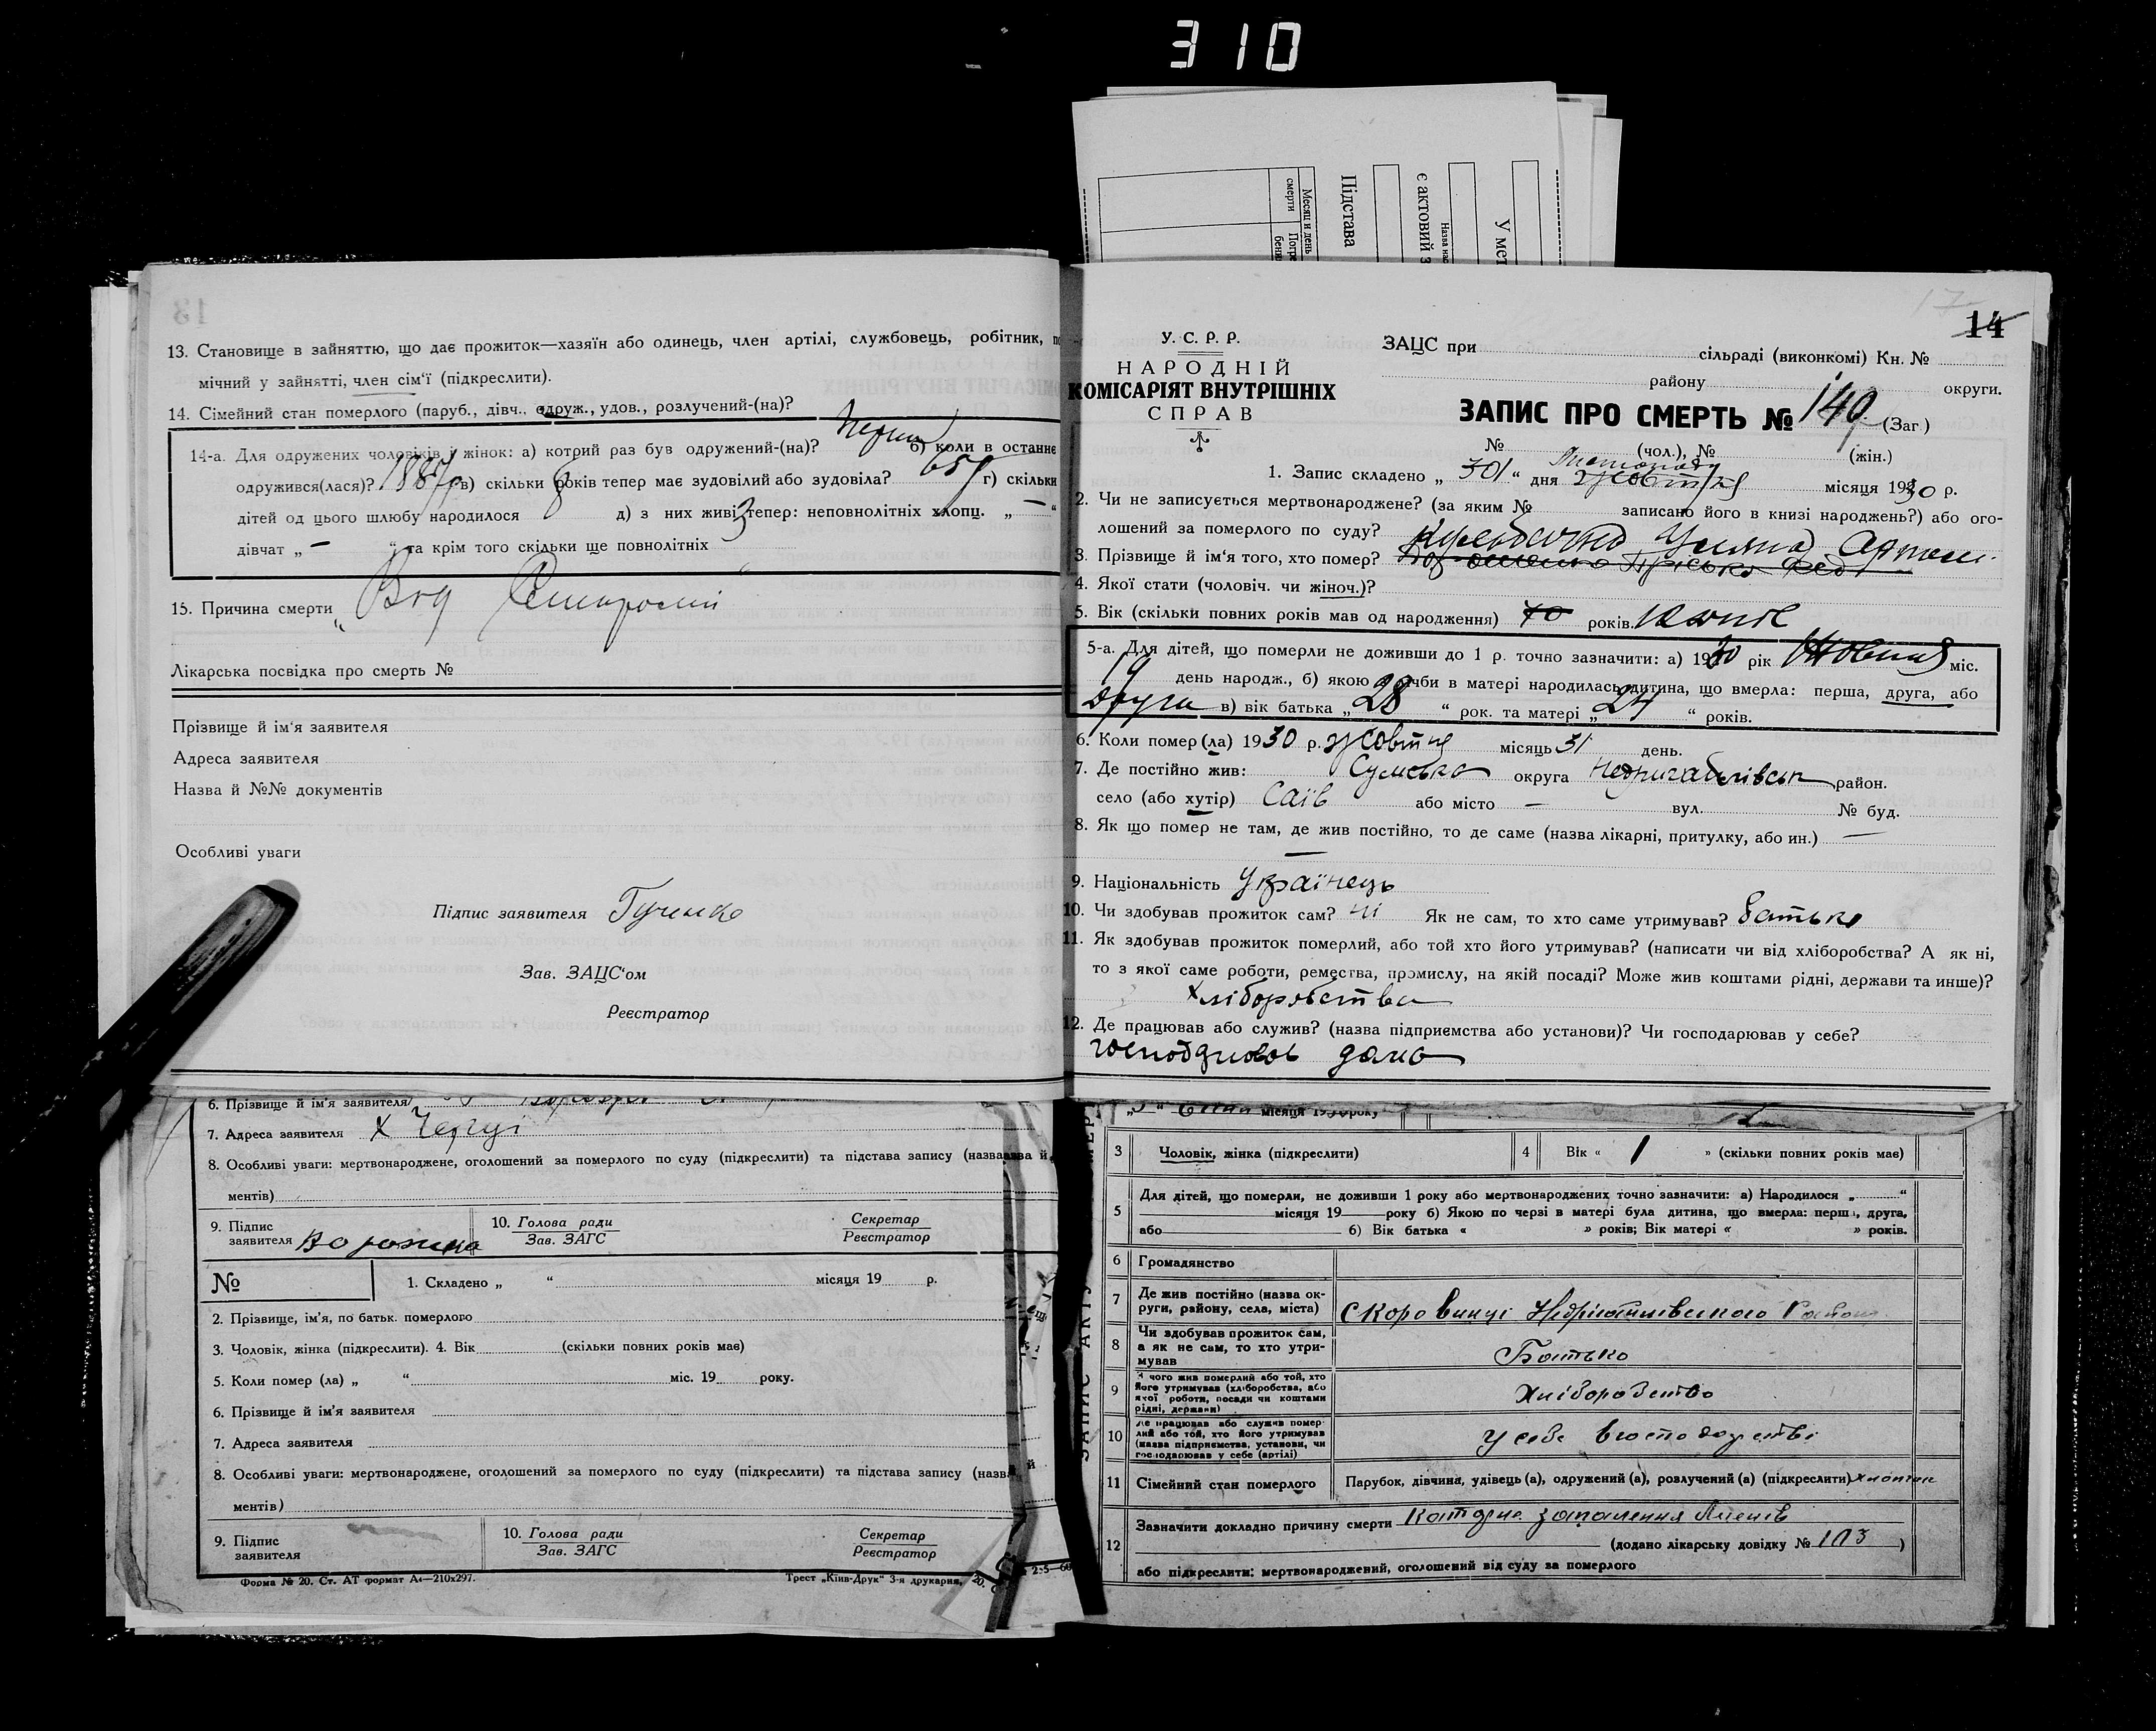 310
Месяц и день смерти
Погре
бени
Підстава
є актовий з
Назва нас
У мет
13
13. Становище в зайняттю, що дає прожиток—хазяїн або одинець, член артілі, службовець, робітник, по
мічний у зайнятті, член сім'ї (підкреслити).
14. Сімейний стан померлого (паруб., дівч., одруж., удов., розлучений-(на)?
14-а. Для одружених чоловіків і жінок: а) котрий раз був одружений-(на)? перши б) коли в останнє
одружився(лася)? 1887 р в) скільки років тепер має зудовілий або зудовіла? 65 р г) скільки
дітей од цього шлюбу народилося 8 д) з них живі тепер: неповнолітніх хлопц. „ — “
дівчат „ — “ та крім того скільки ще повнолітніх 3
15. Причина смерти Від
Лікарська посвідка про смерть №
Прізвище й ім'я заявителя
Адреса заявителя
Назва й №№ документів
Особливі уваги
Підпис заявителя Гученко
Зав. ЗАЦС'ом
Реєстратор
6. Прізвище й ім'я заявителя
7. Адреса заявителя х
8. Особливі уваги: мертвонароджене, оголошений за померлого по суду (підкреслити) та підстава запису (назва й
ментів)
9. Підпис заявителя
10. Голова ради
Зав. ЗАГС
Секретар
Реєстратор
№
1. Складено „ “ місяця 19 р.
2. Прізвище, ім'я, по батьк. померлого
3. Чоловік, жінка (підкреслити). 4. Вік (скільки повних років має)
5. Коли помер (ла) „ “ міс. 19 року.
6. Прізвище й ім'я заявителя
7. Адреса заявителя
8. Особливі уваги: мертвонароджене, оголошений за померлого по суду (підкреслити) та підстава запису (назв
ментів)
9. Підпис заявителя
10. Голова ради
Зав. ЗАГС
Секретар
Реєстратор
Форма № 20. Ст. АТ формат А4—210х297.
Трест „Київ-Друк“ 3-я друкарня,
17
14
У. С. Р. Р.
НАРОДНІЙ
КОМІСАРІЯТ ВНУТРІШНІХ
СПРАВ
ЗАЦС при сільраді (виконкомі) Кн. №
району округи.
ЗАПИС ПРО СМЕРТЬ № 149 (Заг)
№ (чол.), № (жін.)
Листопада
1. Запис складено „ “ дня жовтня місяця 1930 р.
2. Чи не записується мертвонароджене? (за яким № записано його в книзі народжень?) або ого-
лошений за померлого по суду?
3. Прізвище й ім'я того, хто помер? Уляна Артем
4. Якої стати (чоловіч. чи жіноч.)?
5. Вік (скільки повних років мав од народження) 70 років.
5-а. Для дітей, що померли не доживши до 1 р. точно зазначити: а) 1930 рік Жовтня міс.
19 день народж., б) якою з лічби в матері народилась дитина, що вмерла: перша, друга, або
друга в) вік батька „ 28 “ рок. та матері „ 24 “ років.
6. Коли помер (ла) 1930 р. жовтня місяць 31 день.
7. Де постійно жив: Сумська округа Недригайлівськ район.
село (або хутір) Саїв або місто — вул. № буд.
8. Як що помер не там, де жив постійно, то де саме (назва лікарні, притулку, або ин.) —
—
9. Національність Українець
10. Чи здобував прожиток сам? ні Як не сам, то хто саме утримував? батько
11. Як здобував прожиток померлий, або той хто його утримував? (написати чи від хліборобства? А як ні,
то з якої саме роботи, ремества, промислу, на якій посаді? Може жив коштами рідні, держави та инше)?
хліборобства
12. Де працював або служив? (назва підприємства або установи)? Чи господарював у себе?
дома
місяця 1930 року
3 Чоловік, жінка (підкреслити) 4 Вік « 1 » (скільки повних років має)
5 Для дітей, що померли, не доживши 1 року або мертвонароджених точно зазначити: а) Народилося „ “
місяця 19 року б) Якою по черзі в матері була дитина, що вмерла: перша, друга,
або б) Вік батька « » років; Вік матері « » років.
6 Громадянство
7 Де жив постійно (назва ок-
руги, району, села, міста)
8 Чи здобував прожиток сам,
а як не сам, то хто утри-
мував Батько
9 З чого жив померлий або той, хто
його утримував (хліборобства, або
якої роботи, посади чи коштами
рідні, держави) Хліборобство
10 Де працював або служив помер-
лий або той, хто його утримував
(назва підприємства, установи, чи
господарював у себе (артілі) у себе в господарстві
11 Сімейний стан померлого Парубок, дівчина, удівець (а), одружений (а), розлучений (а) (підкреслити) хлопчик
12 Зазначити докладно причину смерти запалення
(додано лікарську довідку № 103)
або підкреслити: мертвонароджений, оголошений від суду за померлого